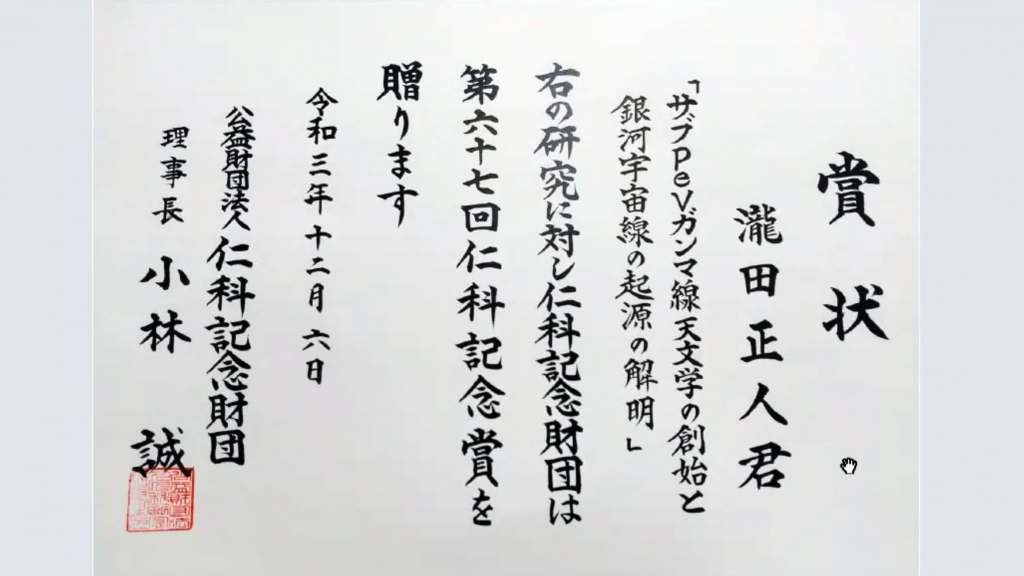 賞状
瀧田正人君
「サブPeVガンマ線天文学の創始と
銀河宇宙線の起源の解明」
右の研究に対し仁科記念財団は
第六十七回仁科記念賞を
贈ります
令和三年十二月六日
公益財団法人仁科記念財団
理事長 小林 誠